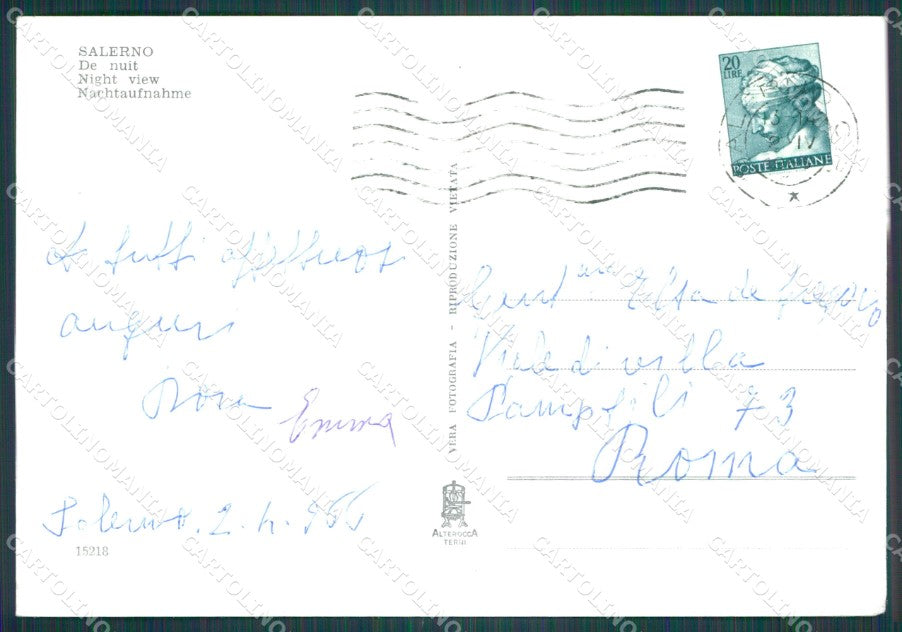 SALERNO
De nuit
Night view
Nachtaufnahme
20
LIRE
POSTE ITALIANE
A tutti affettuosi
auguri
Emma
Salerno. 2. 4.
15218
VERA FOTOGRAFIA - RIPRODUZIONE VIETATA
ALTEROCCA
TERNI
Gent ma Elsa de
Viale di villa
Pamphili 73
Roma
CARTOLINOMANIA